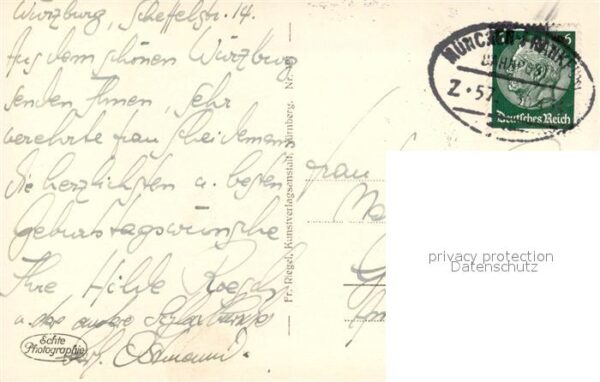 Würzburg, Scheffelstr. 14.
Aus dem schönen Würzburg
senden Ihnen, sehr
verehrte Frau Scheidemann
die herzlichsten u. besten
Geburtstagswünsche
Ihre Hilde
u. die andere
Ostmann.
Echte
Photographie
Fr. Riegel, Kunstverlagsanstalt, Nürnberg. Nr.
MÜNCHEN-FRANKF
BAHNPOST
Z.57
6
Deutsches Reich
Frau
privacy protection
Datenschutz